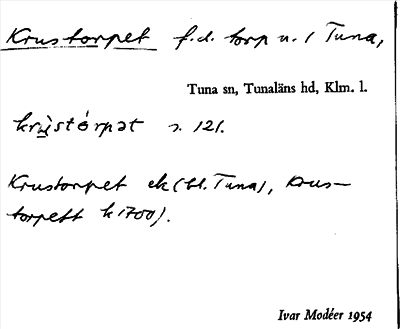 Krustorpet f.d. torp u. / Tuna,
Tuna sn, Tunaläns hd, Klm. l.
krùstórpət s. 121.
Krustorpet ek (bl. Tuna), Krus-
torpett k 1700).
Ivar Modéer 1954